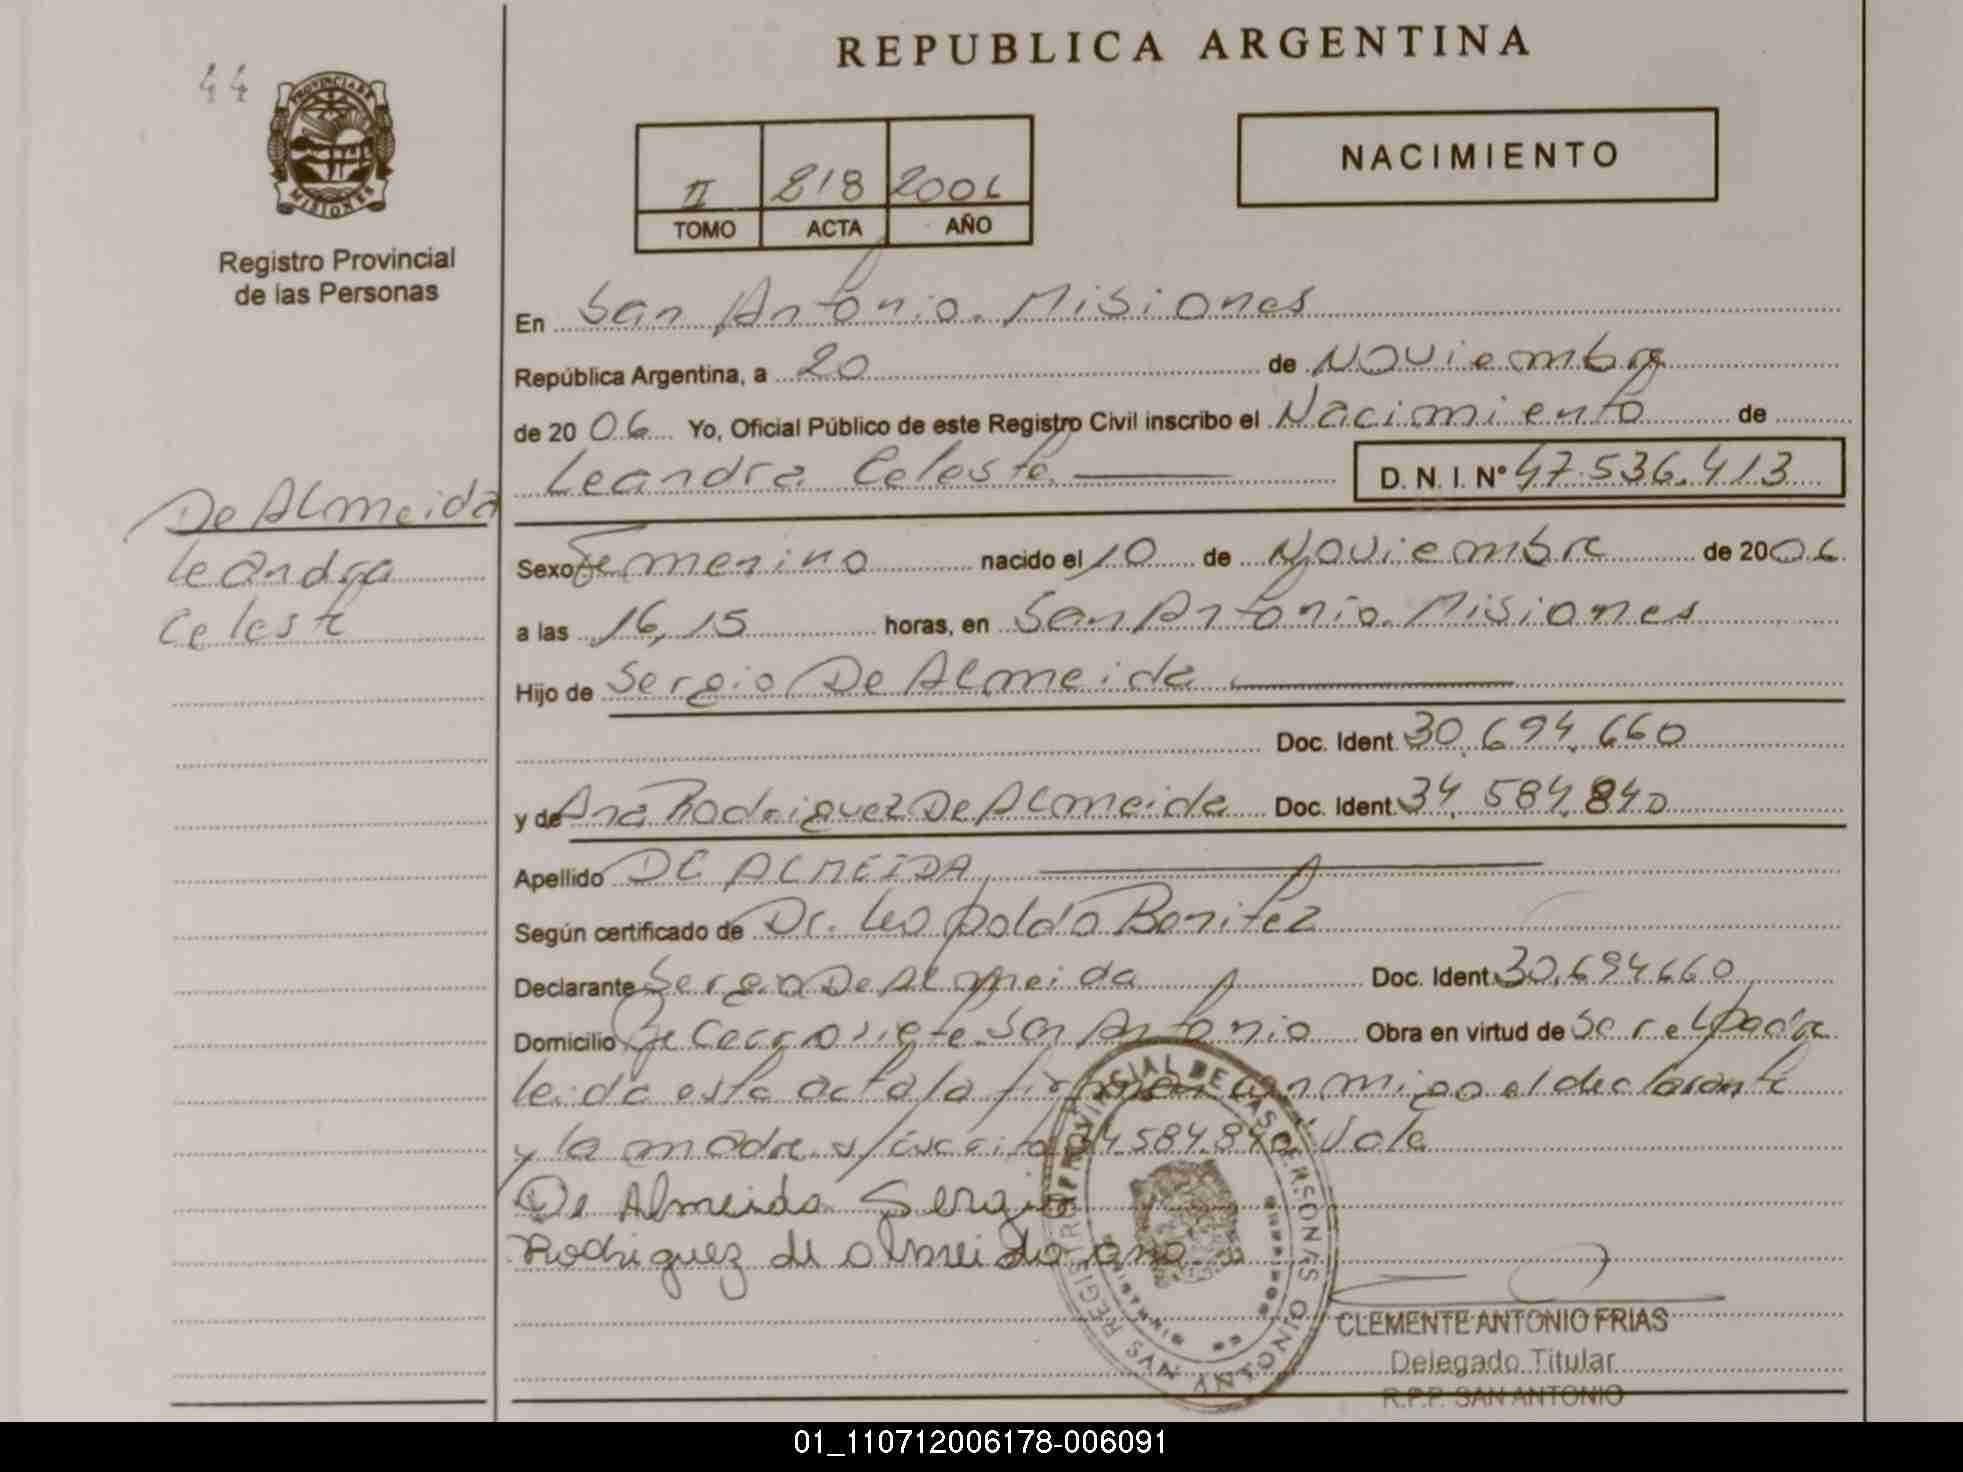 44
PROVINCIA DE
MISIONES
Registro Provincial
de las Personas
De Almeida
Leandra
Celeste
REPUBLICA ARGENTINA
II 818 2006
TOMO ACTA AÑO
NACIMIENTO
En San Antonio. Misiones
República Argentina, a 20 de Noviembre
de 20 06 Yo, Oficial Público de este Registro Civil inscribo el Nacimiento de
Leandra Celeste D. N. I. N° 47.536.413
Sexo Femenino nacido el 10 de Noviembre de 2006
a las 16,15 horas, en San Antonio. Misiones
Hijo de Sergio De Almeida
Doc. Ident. 30.694.660
y de Ana Rodriguez De Almeida Doc. Ident. 34.584.840
Apellido DE ALMEIDA
Según certificado de Dr. Leopoldo Benitez
Declarante Sergio De Almeida Doc. Ident. 30.694.660
Domicilio Cerro siete San Antonio Obra en virtud de Ser el padre
leida esta acta la firman conmigo el declarante
y la madre s/ 34.584.840 Vale
De Almeida Sergio
Rodriguez de almeida ana
REGISTRO PROVINCIAL DE LAS PERSONAS
SAN ANTONIO
CLEMENTE ANTONIO FRIAS
Delegado Titular
R.P.P. SAN ANTONIO
01_110712006178-006091